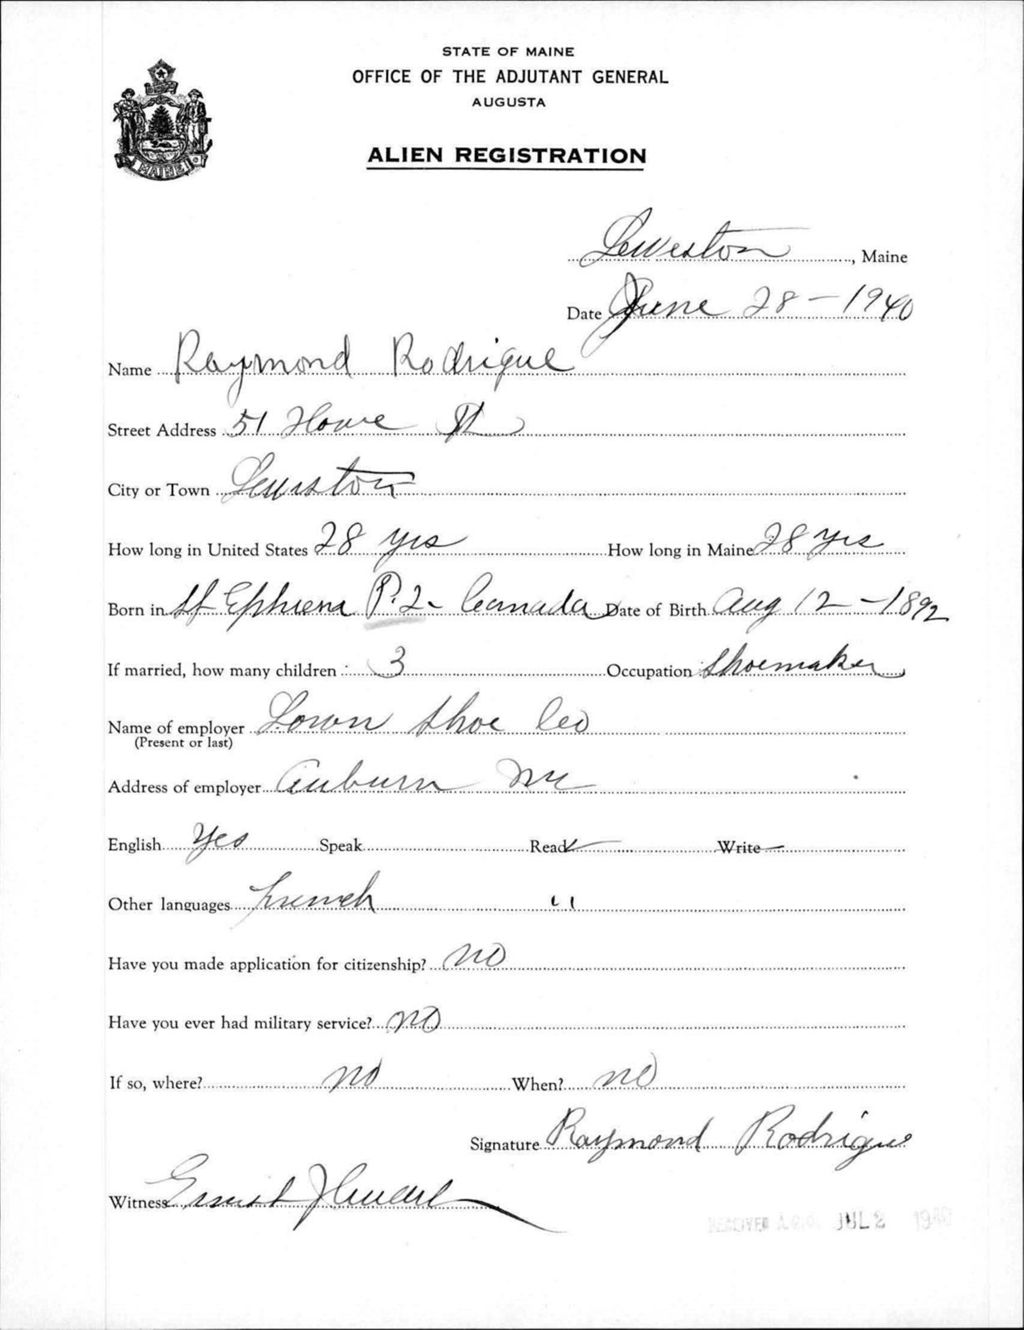 STATE OF MAINE
OFFICE OF THE ADJUTANT GENERAL
AUGUSTA
ALIEN REGISTRATION
MAINE
Lewiston, Maine
Date June 28-1940
Name Raymond Rodrigue
Street Address 51 Howe St
City or Town Lewiston
How long in United States 28 yrs How long in Maine 28 yrs
Born in St Ephrem P.Q- Canada Date of Birth Aug 12-1892
If married, how many children 3 Occupation Shoemaker
Name of employer Lown Shoe Co
(Present or last)
Address of employer Auburn Me
English Yes Speak Read ✓ Write —
Other languages French "
Have you made application for citizenship? no
Have you ever had military service? no
If so, where? no When? no
Signature Raymond Rodrigue
Witness Ernest
RECEIVED A.G.O. JUL 2 1940